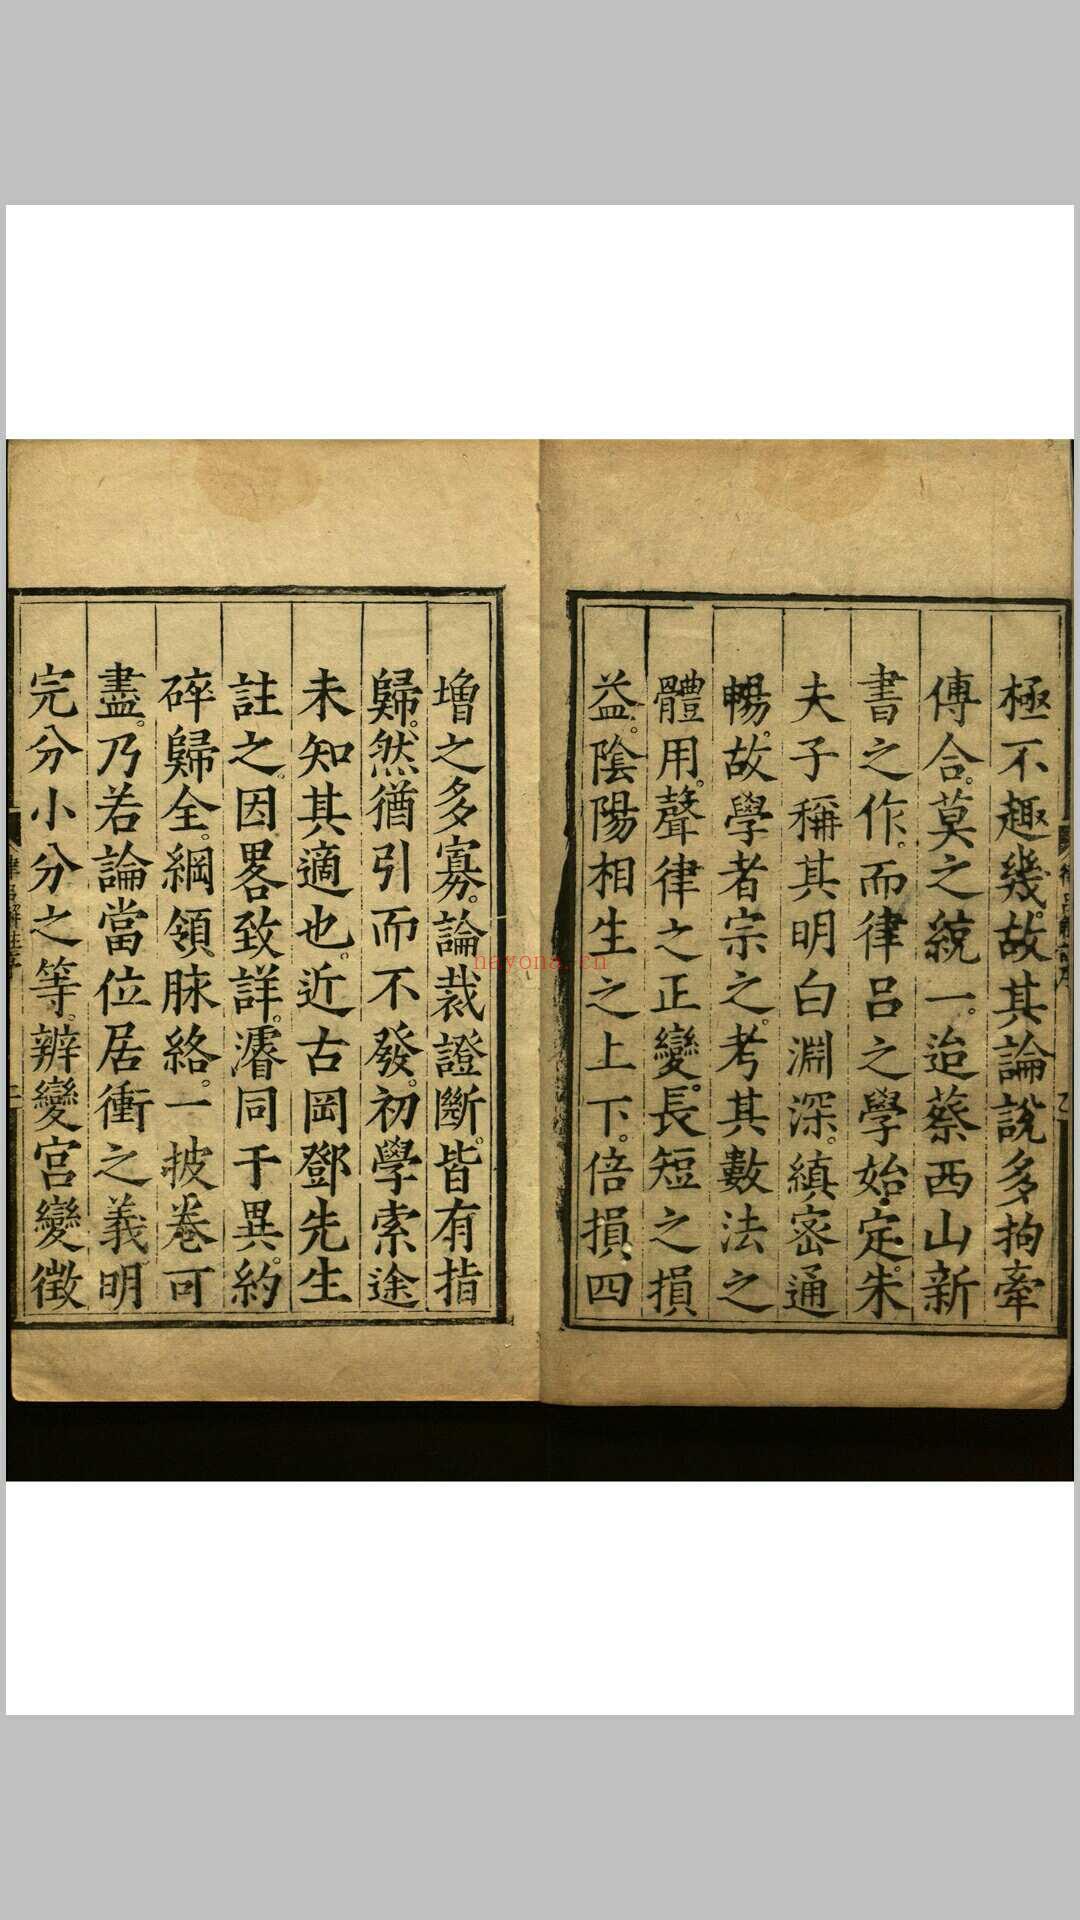 極不趣幾。故其論說多拘牽
傅合。莫之統一。迨蔡西山新
書之作。而律呂之學始定。朱
夫子稱其明白淵深。縝宻通
暢。故學者宗之。考其數法之
體用。聲律之正變。長短之損
益。陰陽相生之上下。倍損四
増之多寡。論裁證斷。皆有指
歸。然猶引而不發。初學索途
未知其適也。近古岡鄧先生
註之。因畧致詳。濬同于異。約
碎歸全。綱領脉絡。一披卷可
盡。乃若論當位居衝之義。明
完分小分之等。辨變宮變徵
律呂解註序
nayona.cn